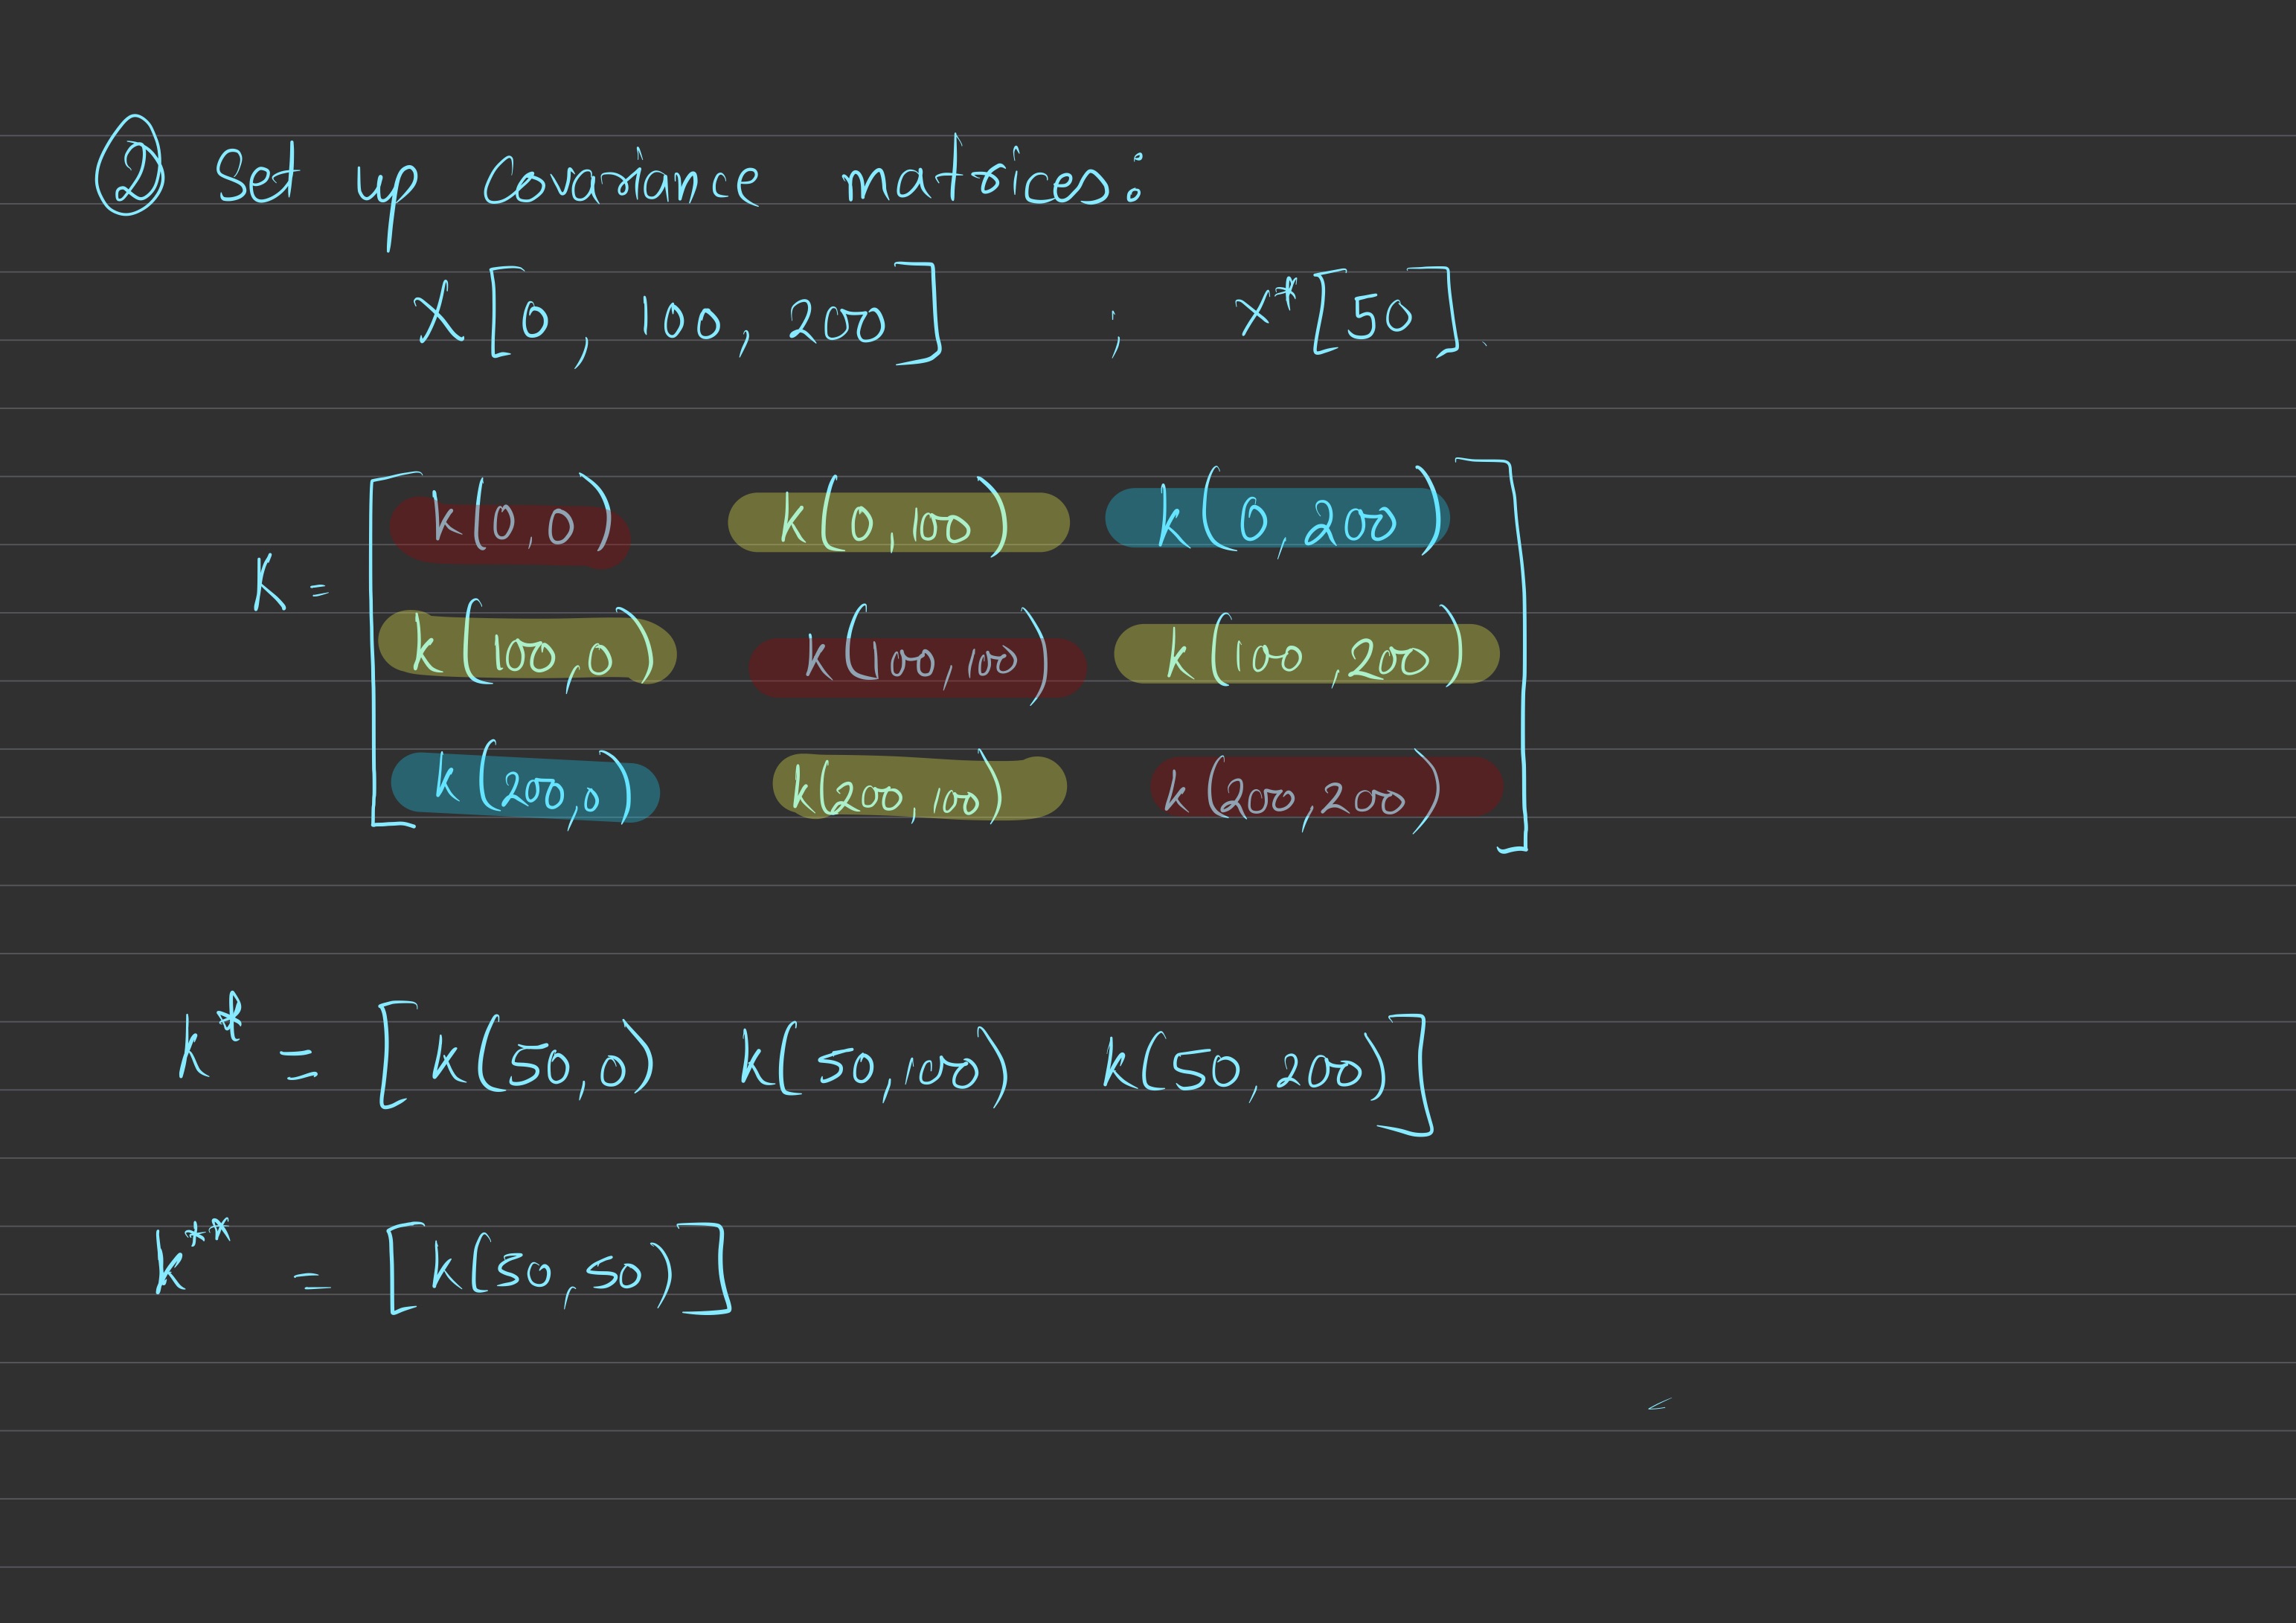 ② Set up covariance matrices:
X [0, 100, 200] ; X* [50].
K = [ k(0,0) k(0,100) k(0,200)
k(100,0) k(100,100) k(100,200)
k(200,0) k(200,100) k(200,200) ]
k* = [ k(50,0) k(50,100) k(50,200) ]
k** = [ k(50,50) ]